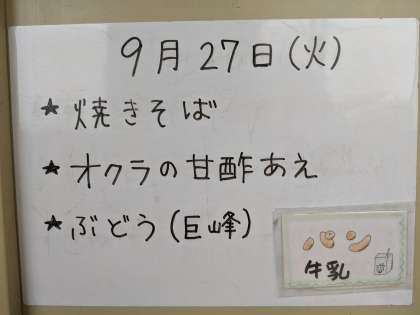 9月27日(火)
★ 焼きそば
★ オクラの甘酢あえ
★ ぶどう(巨峰)
パン
牛乳